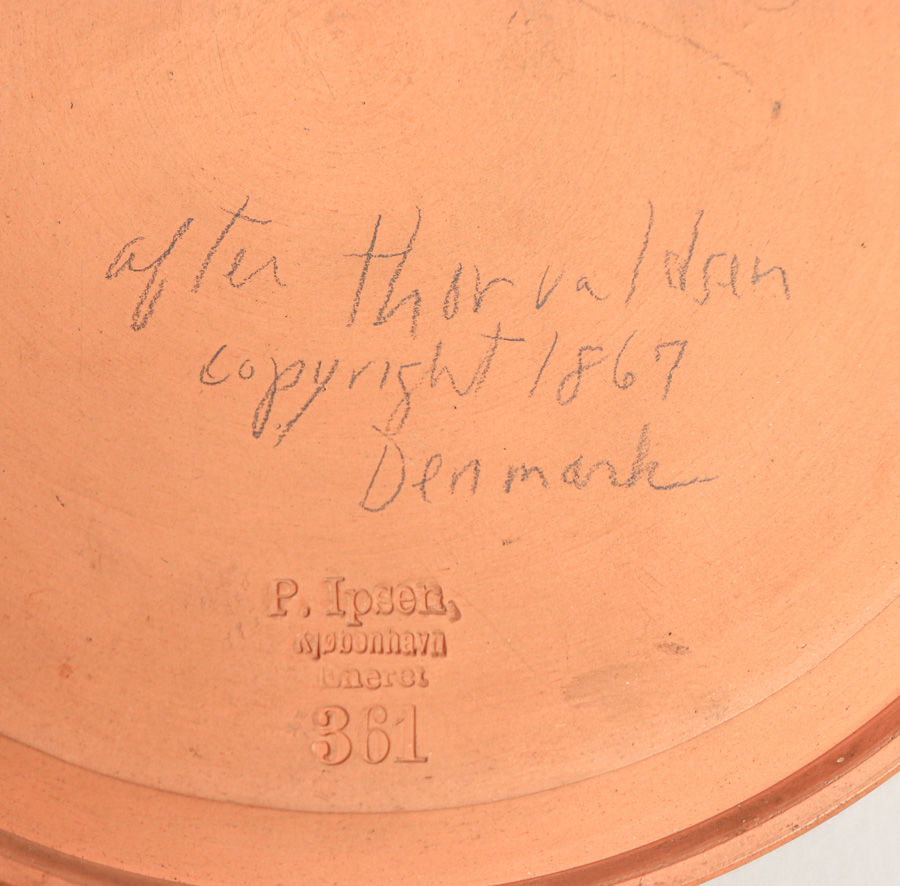 after Thorvaldsen
copyright 1867
Denmark
P. Ipsen,
Kjøbenhavn
361